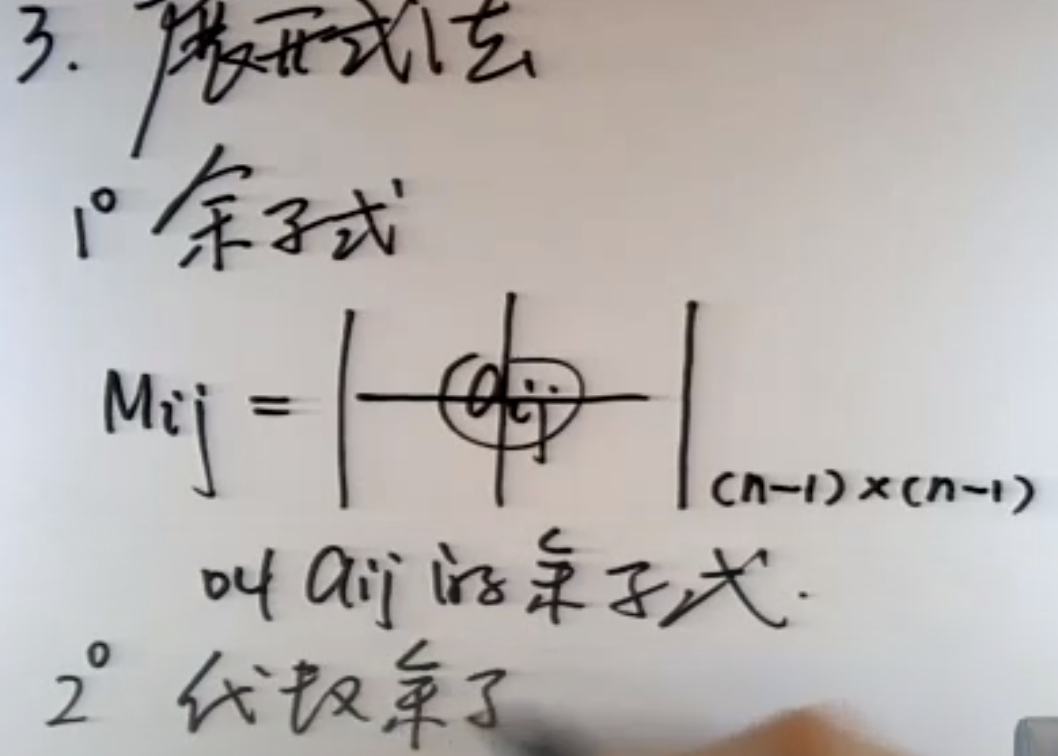 3. 展开式法
1° 余子式
Mij = | aij |(n-1)×(n-1)
叫 aij 的余子式.
2° 代数余子